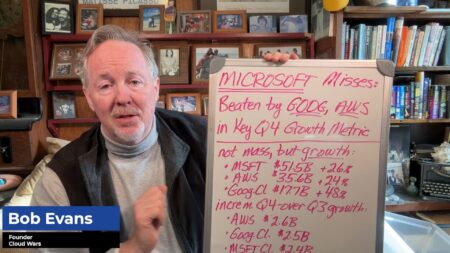 MATISSE PICASSO
MICROSOFT Misses:
Beaten by GOOG, AWS
in Key Q4 Growth Metric
not mass, but growth:
• MSFT $51.5B +26%
• AWS 35.6B +24%
• Goog Cl. $17.7B + 48%
increm. Q4-over Q3 growth.
• AWS $2.6B
• Goog Cl. $2.5B
• MSFT Cl. $2.4B
Bob Evans
Founder
Cloud Wars